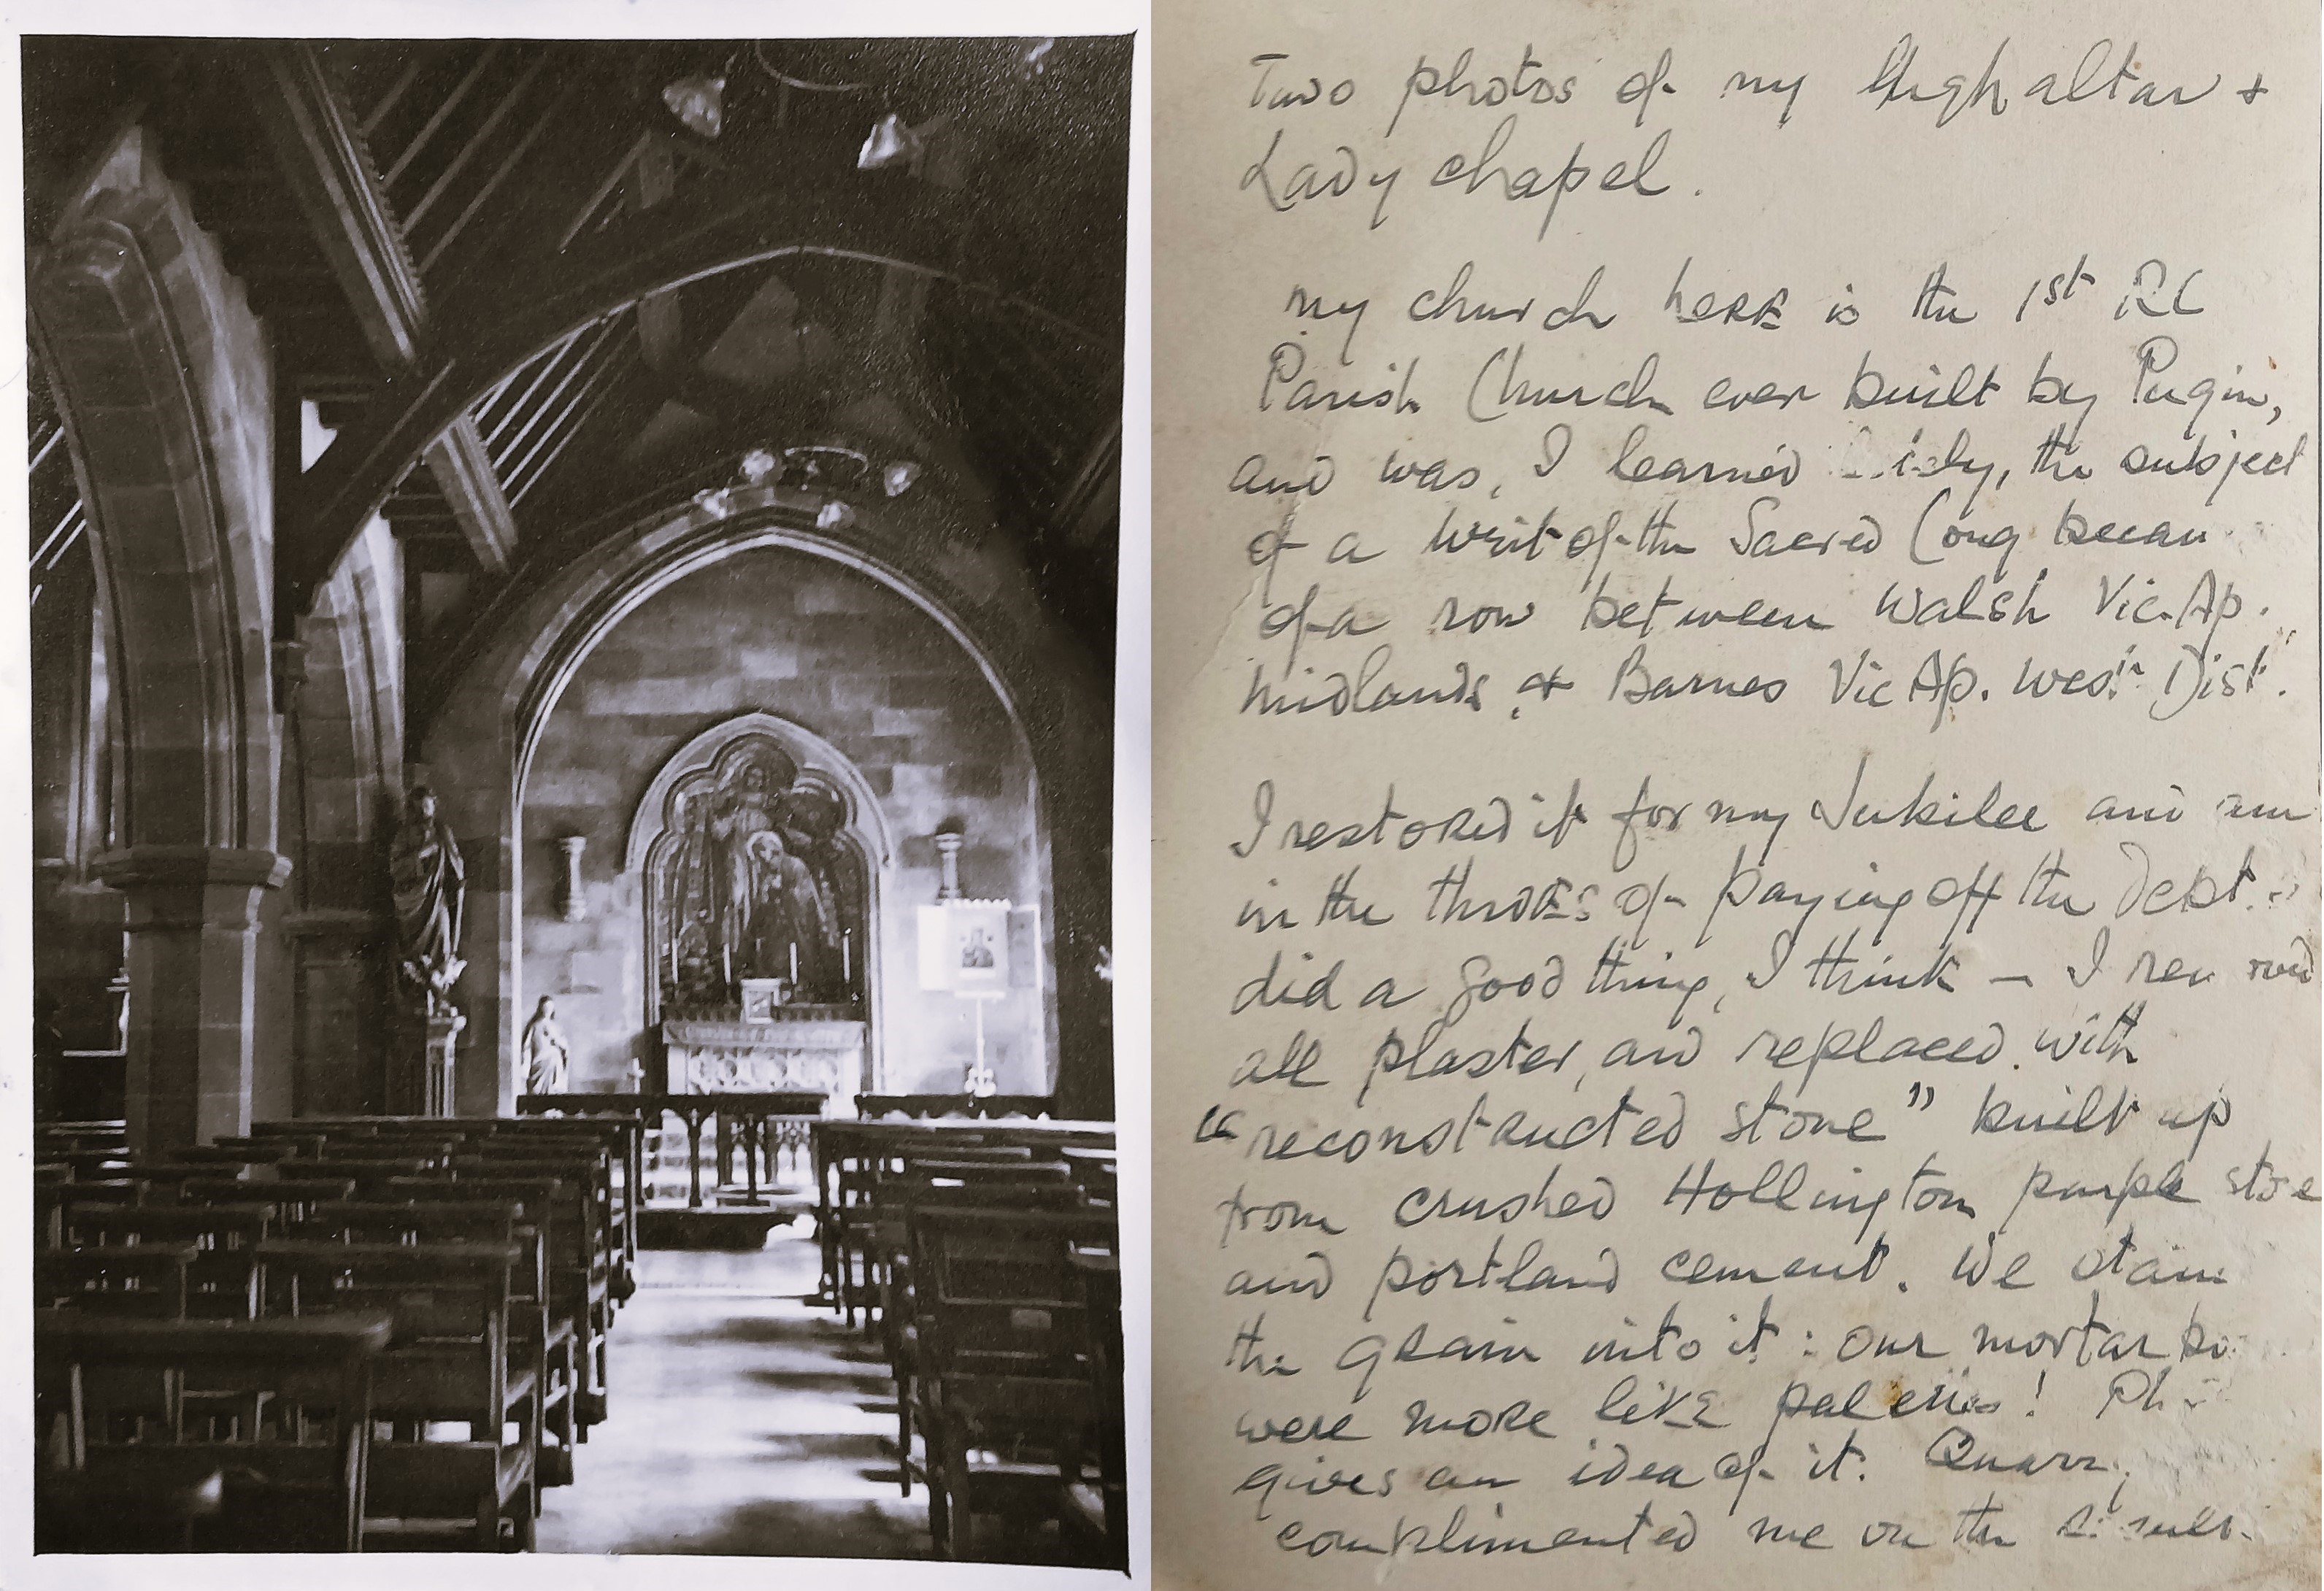 Two photos of my High altar +
Lady chapel.
my church here is the 1st RC
Parish Church ever built by Pugin,
and was, I learned the subject
of a writ of the Sacred Cong
of a row between Walsh Vic. Ap.
Midlands, & Barnes Vic Ap. West Dist.
I restored it for my Jubilee and am
in the throes of paying off the debt.
did a good thing, I think – I
all plaster, and replaced with
"reconstructed stone" built up
from crushed Hollington purple
and portland cement. We
the grain into it : our mortar
were more like !
gives an idea of it.
complimented me on the